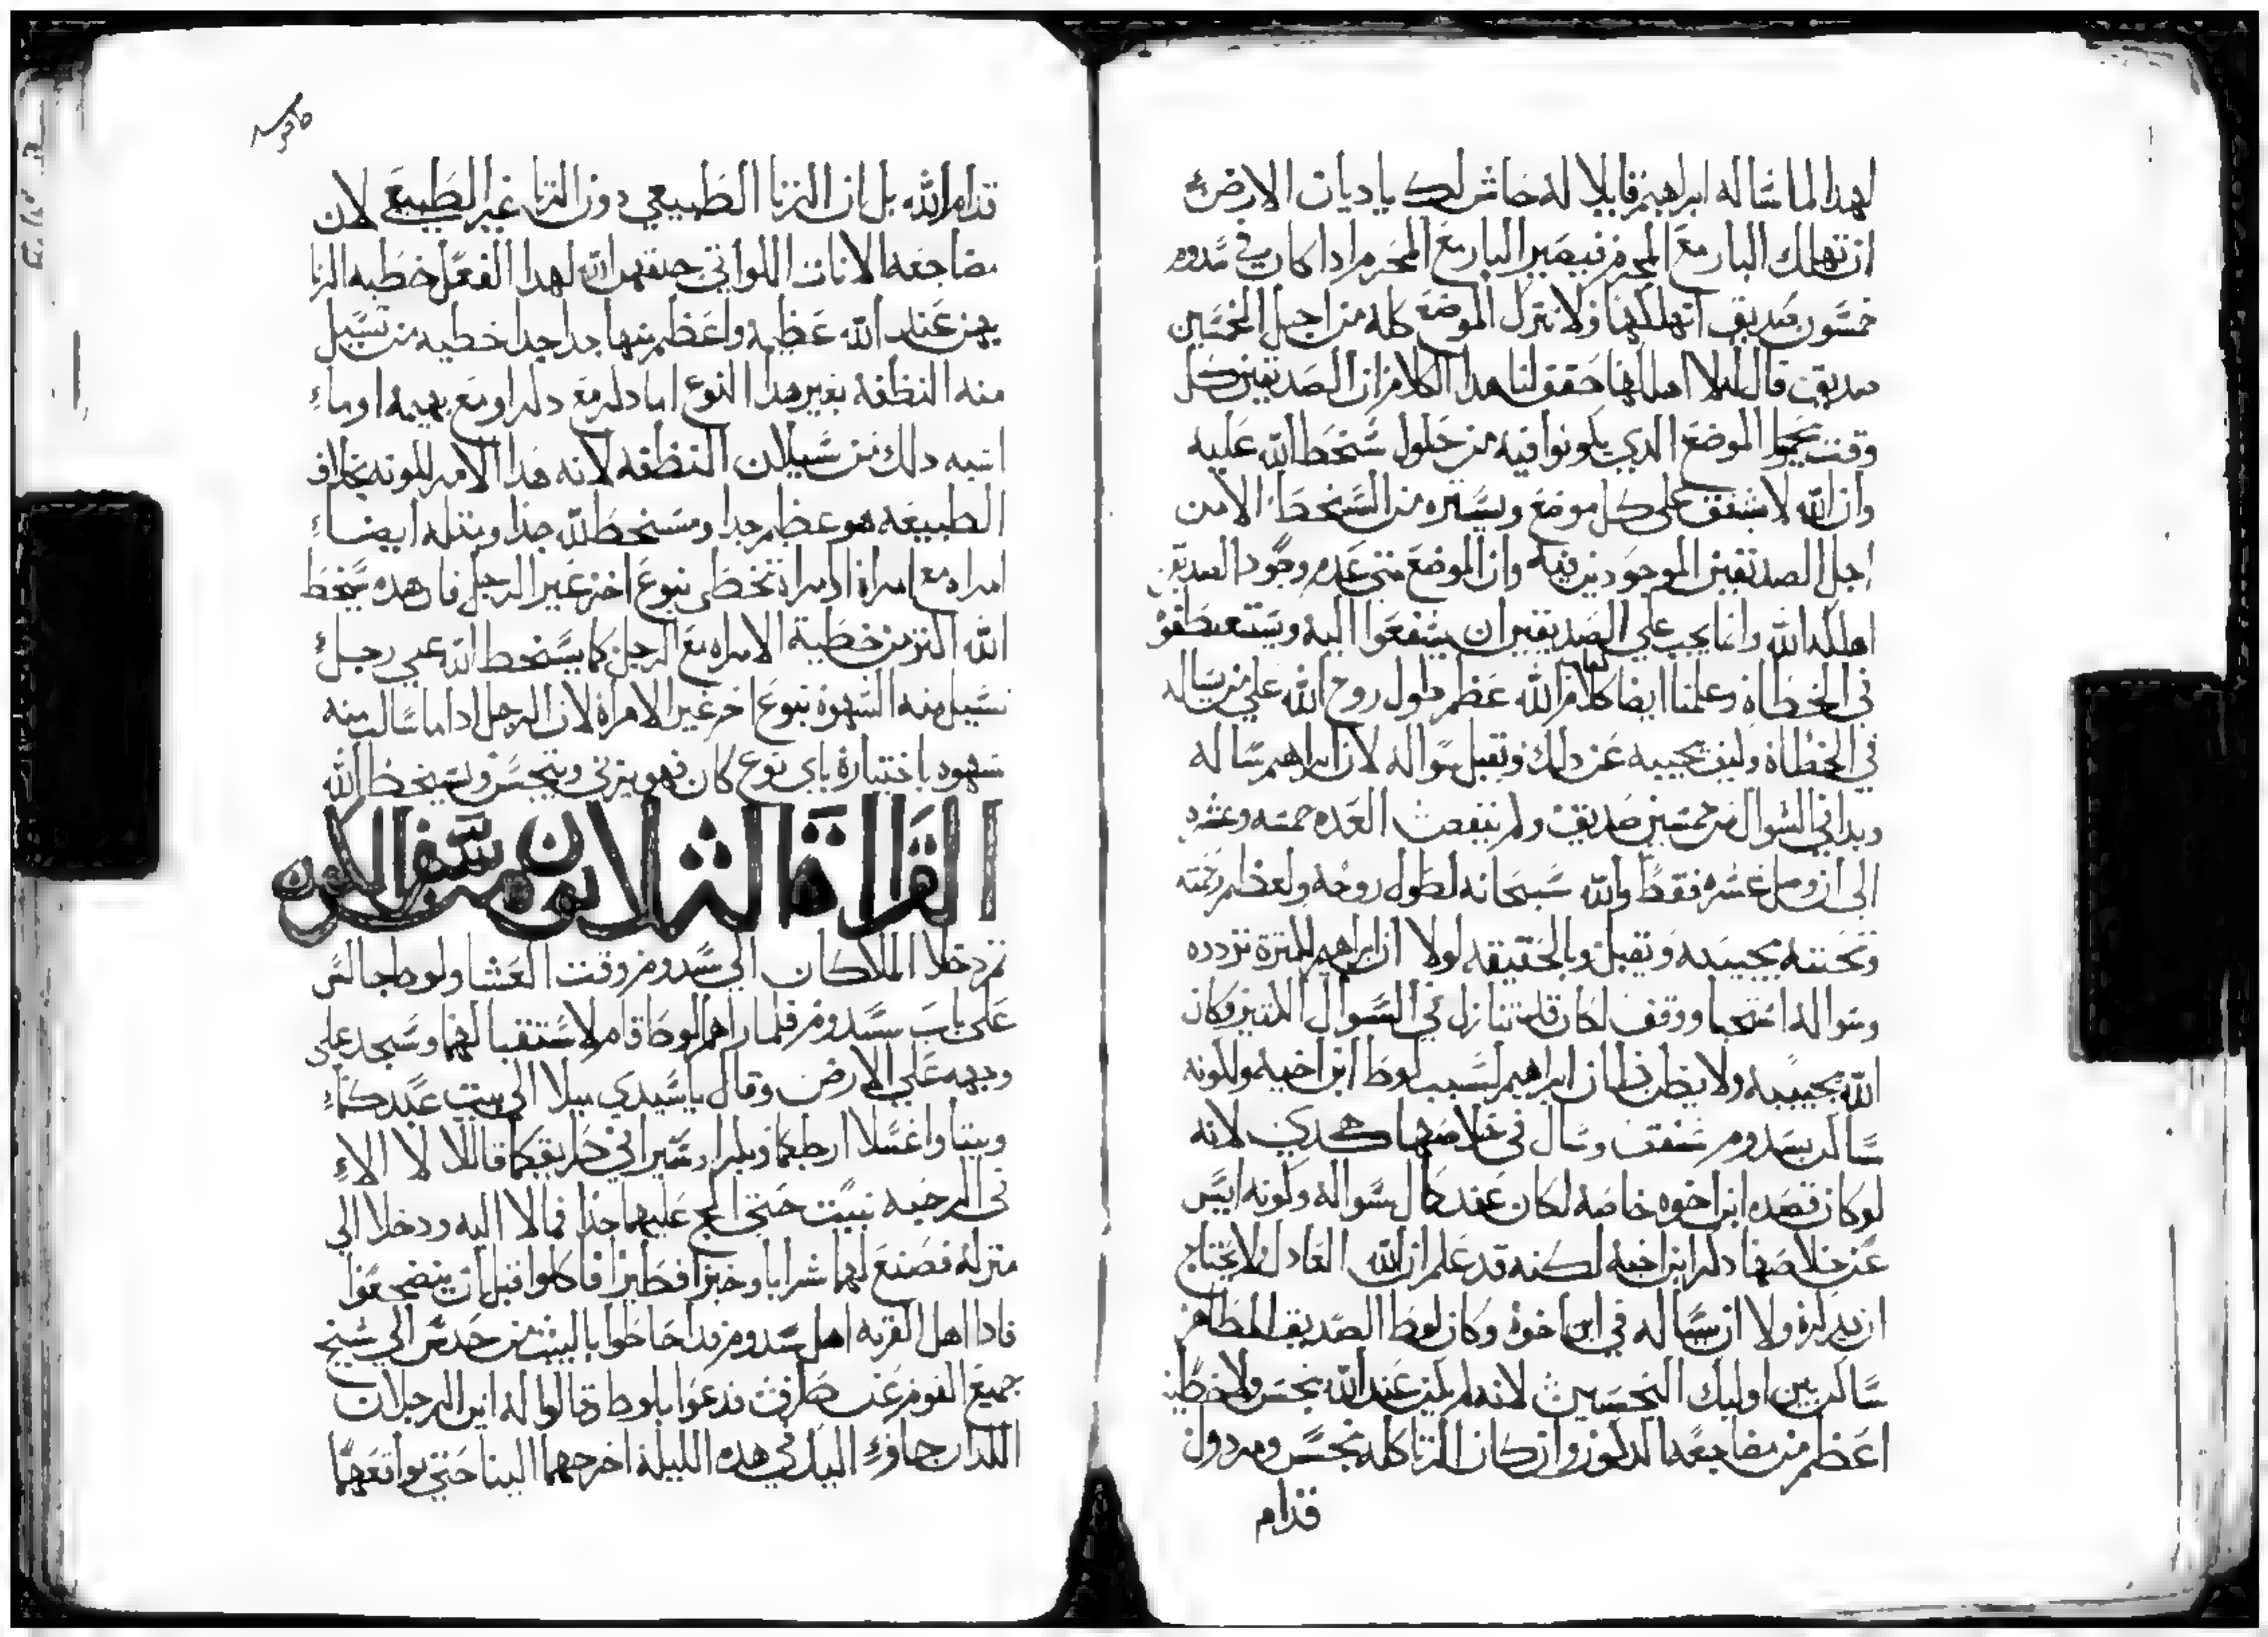 لهدا لما ساله ابراهيم قايلا له حاش لك يا ديان الارض
ان تهلك البار مع المجرم فيصير البار مع المجرم ادا كان في سدوم
خمسون صديق اتهلكهما ولا تترك الموضع كله من اجل الخمسين
صديق قال لهلا اهلكها حقق لنا هدا الكلام ان الصديقين كل
وقت يحموا الموضع الدي يكونوا فيه من حلول سخط الله عليه
وان الله لا يشفق على كل موضع ويستره من السخط الا من
اجل الصديقين الموجودين فيه وان الموضع متى عدم وجود الصديقين
اهلكه الله وانما يجب على الصديقين ان يشفعوا اليه ويستعطفوه
في الخطاه وعلمنا ايضا كلام الله عظم طول روح الله على من يساله
في الخطاه وكيف يجيبه عن دلك ويقبل سواله لان ابراهيم ساله
وبدا في السوال من خمسين صديق ولم ينقص العده خمسه وعشره
الى ان وصل عشره فقط والله سبحانه لطول روحه ولعظم رحمته
وتحننه يجيبه ويقبل وبالحقيقه لولا ان ابراهيم لكثرة تردده
وسواله استحيا ووقف لكان قد تنازل في السوال اكثر وكان
الله يجيبه ولا يظن ظان ان ابراهيم لسبب لوط ابن اخيه ولكونه
ساكن بسدوم شفق وسال في خلاصها هكدي لانه
لو كان قصده ابن اخوه خاصه لكان عند كمال سواله وكونه ايس
عن خلاصها دكر ابن اخيه لكنه قد علم ان الله العادل لا يحتاج
ان يدكره ولا ان يساله في ابن اخوه وكان لوط الصديق الطاهر
ساكن بين اوليك النجسين لانه لم يكن عند الله نجس ولا خطيه
اعظم من مضاجعه الدكور وان كان الزنا كله نجس ومردول
قدام
قدام الله بل ان الزنا الطبيعي دون الزنا غير الطبيعي لان
مضاجعه الاناث اللواتي خلقهم الله لهدا الفعل خطيه الزنا
بهن عند الله عظيمه واعظم منها جدا جدا خطيه من تسيل
منه النطفه بغير هدا النوع اما دكر مع دكر او مع بهيمه او ما
اشبه دلك من سيلان النطفه لانه هدا الامر لكونه بخلاف
الطبيعه هو عظيم جدا ومسخط لله جدا ومثله ايضا
امراه مع امراة او امراة تخطي بنوع اخر غير الرجل فان هده تسخط
الله اكتر من خطية الامراه مع الرجل كما يسخط الله على رجل
تسيل منه الشهوة بنوع اخر غير الامراة لان الرجل ادا ما سالت منه
شهوه باختيارة باي نوع كان فهو يزني ويتنجس ويسخط الله
القراة الثلاثون من سفر التكوين
ثم دخلا الملاكان الى سدوم وقت العشا ولوط جالس
على باب سدوم فلما راهم لوط قام لاستقبالهما وسجد على
وجهه على الارض وقال يا سيدي ميلا الى بيت عبدكما
وبيتا واغسلا ارجلكما وبكرا وسيرا في طريقكما قالا لا لا
في الرحبه نبيت حتى الح عليهما جدا فمالا اليه ودخلا الى
منزله فصنع لهما شرابا وخبزا فطيرا فاكلوا قبل ان ينضجعوا
فادا اهل القريه اهل سدوم قد احاطوا بالبيت من حدث الى شيخ
جميع القوم عن طرف فدعوا بلوط وقالوا له اين الرجلان
اللدان جاوا اليك في هده الليلة اخرجهما الينا حتى نواقعهما